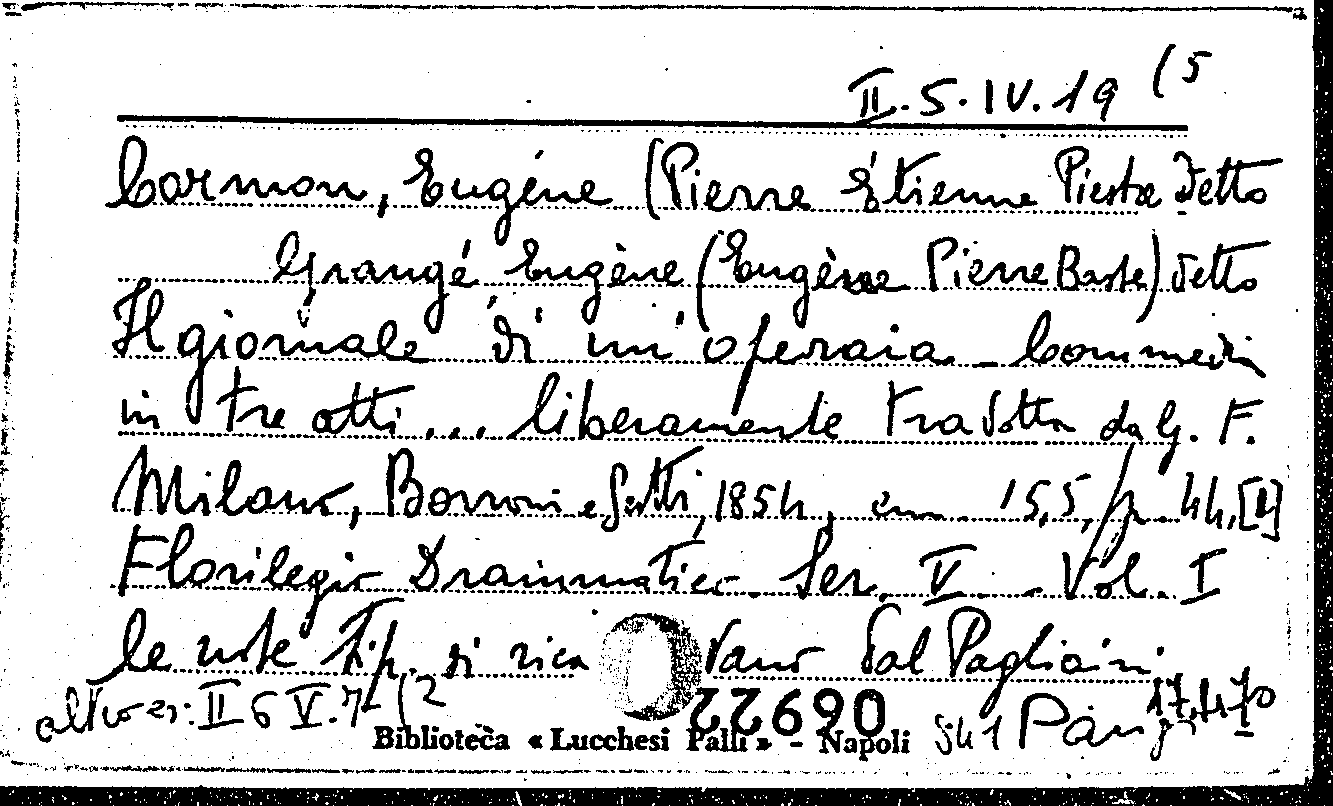 II.5.IV.19 (5
Cormon, Eugéne (Pierre Étienne Piestre detto
Grangé Eugène (Eugène Pierre Baste) detto
Il giornale di un'operaia - Commedia
in tre atti... liberamente tradotta da G. F.
Milano, Borroni e Scotti, 1854, cm. 15,5, p. 44, [1]
Florilegio Drammatico. Ser. V. - Vol. I
le note tip. si rica vano dal Pagliaini.
altro es: II 6 V. 71 (2
22690
17.4.70
Biblioteca « Lucchesi Palli » - Napoli